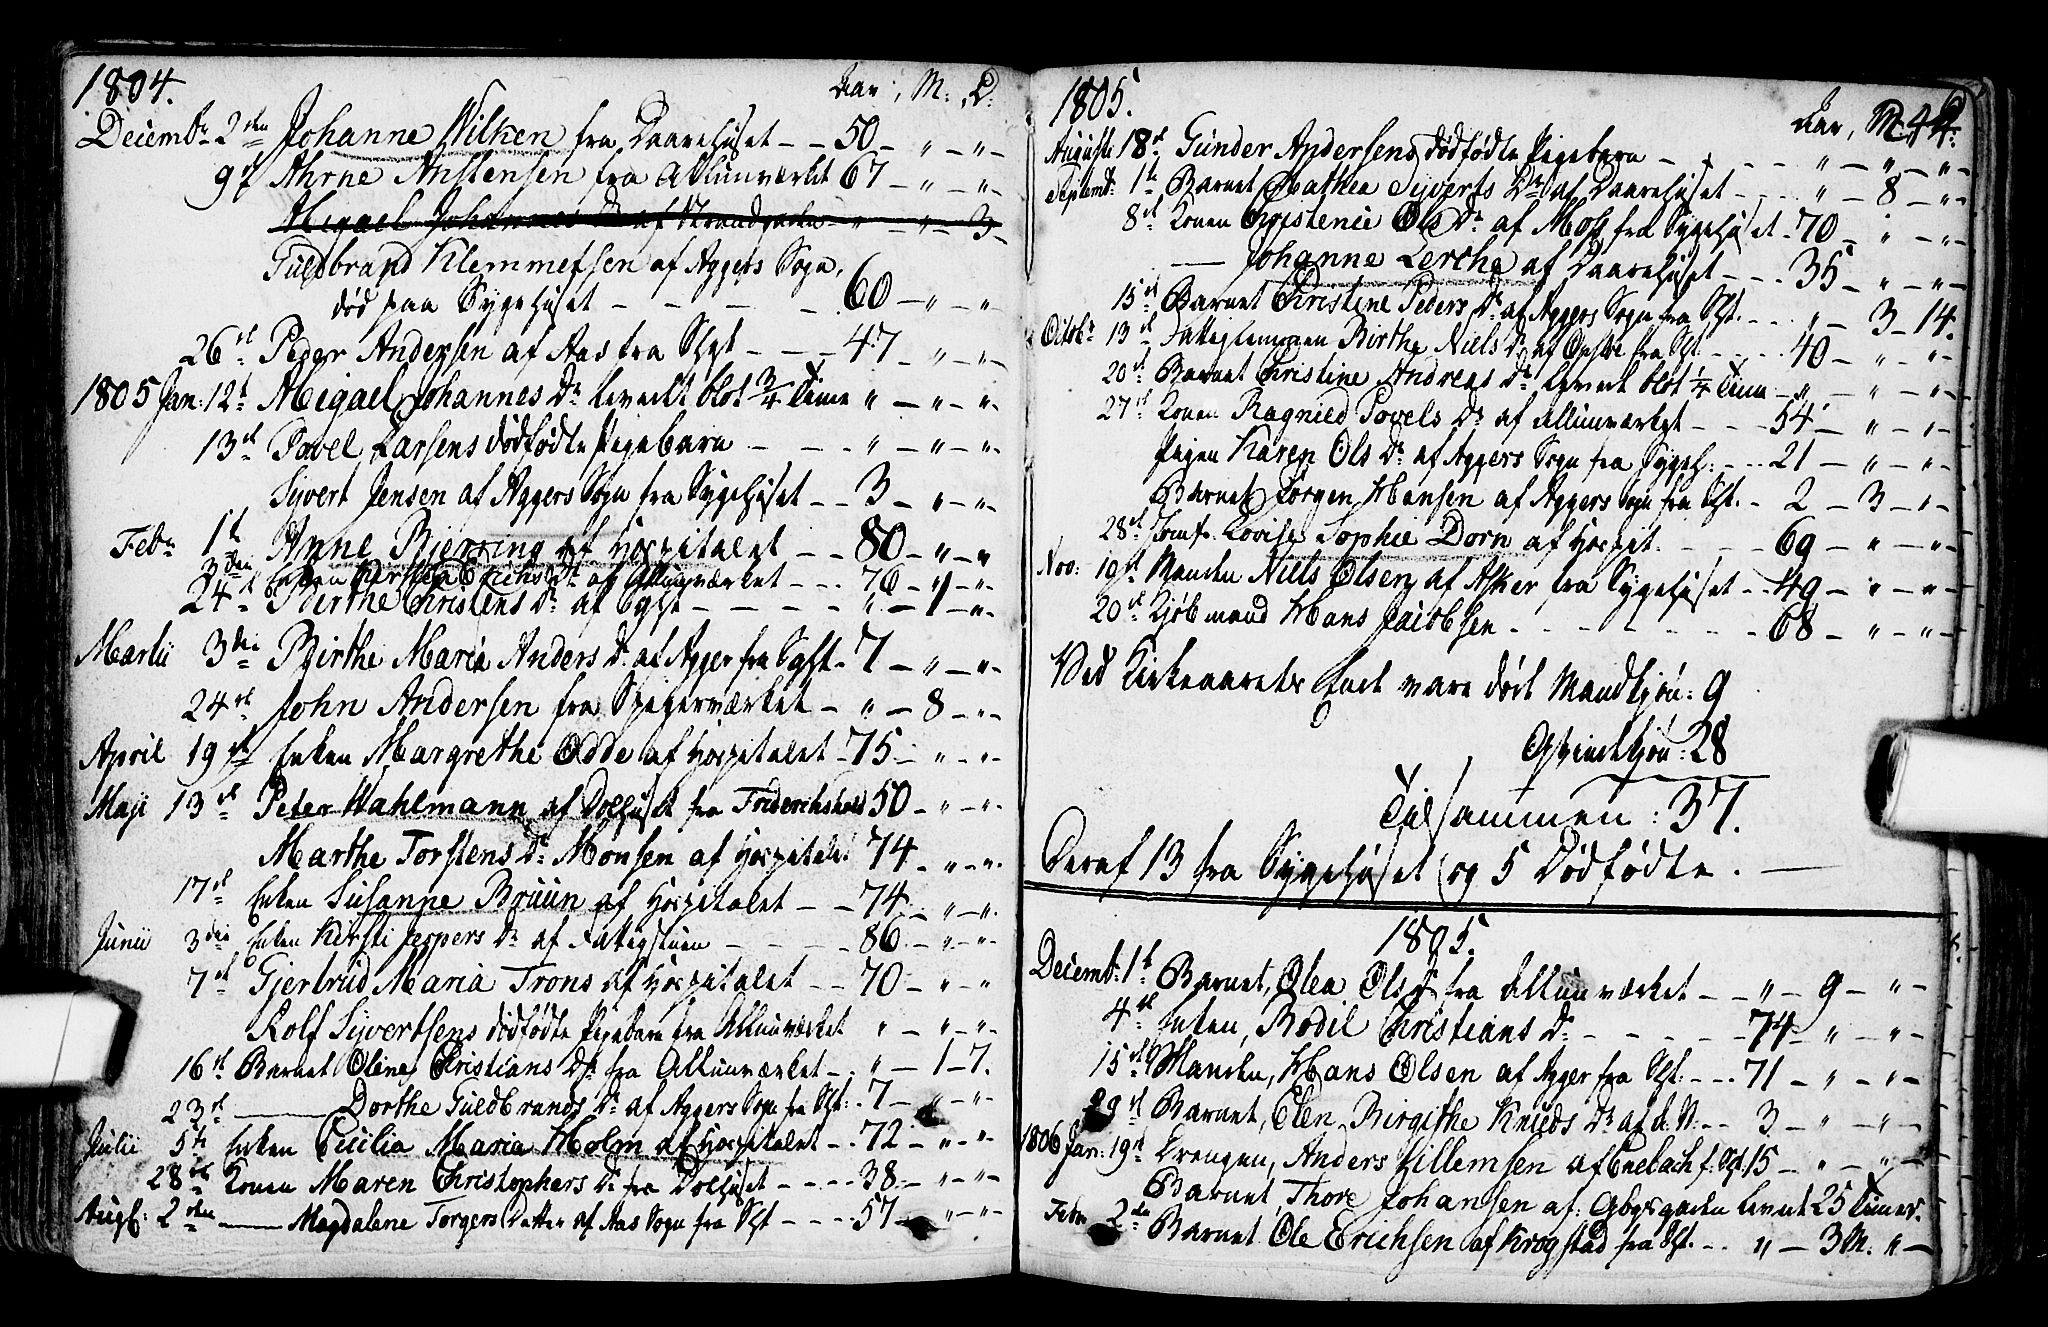 1804. Aar, M: D:
Decembr 2den Johanne Wilken fra Daarehuset - - 50 - " - " -
9d Ahrne Anstensen fra Allunværket 67 - " - " -
Migael Johannes Dr af Strandgaden - " - " - 3 -
Guldbrand Klemmetsen af Aggers Sogn,
død paa Sygehuset - - - - - 60 - " - "
26de Peder Andersen af Aas fra Sgst - - - 47 - " - "
1805 Jan: 12te Migael Johannes Dr levedt blot 3/4 Time " - " - "
13de Povel Larsens dødfødte Pigebarn - - - " - " - "
Syvert Jensen af Aggers Sogn fra Sygehuset - - 3 - " - "
Febr 1te Anne Bjerring af Hospitalet - - 80 - " - "
3den Enken Kirsten Erichs Dr af Allunværket - - - 76 - " - "
24de Berthe Christens Dr af - - - - - " - 1 - "
Martii 3die Birthe Maria Anders D. af Agger fra Sgst - 7 - " - "
24de John Andersen fra Spigerværket - " - 8 - "
April 19de Enken Margrethe Odde af Hospitalet - 75 - " - "
Maji 13de Peter Wahlmann af Dolhuset fra Friderichshald 50 - " - "
Marthe Torstens Dr Monsen af Hospitalet 74 - " - "
17de Enken Susanne Bruun af Hospitalet - - 74 - " - "
Junii 3die Enken Kirsti Jespers Dr af Fattigstuen - - - - 86 - " - "
7de Gjertrud Maria Trons af Hospitalet - - 70 - " - "
Rolf Syvertsens dødfødte Pigebarn fra Allunværket " - " - "
16de Barnet Oline Christians Dr fra Allunværket - . " - 1 - 7.
23de —— Dorthe Guldbrands Dr af Aggers Sogn fra Sgst: - 7 - " - "
Julii 5te Enken Cecilia Maria Holm af Hospitalet - . 72 - " - "
28de Konen Maren Christophers Dr fra Dolhuset - - - - 38 - " - "
Augst: 2den —— Magdalene Torgers Datter af Aas Sogn fra Sgst - - - - 57 - " - "
1805. Aar, M. D: 44.
Augusti 18de Gunder Andersens dødfødte Pigebarn - - - - - " - " - "
Septemb: 1te Barnet Mathea Syverts Dr af Daarehuset - - - - " - 8 - "
8de Konen Christence Ols Dr af Moss fra Sygehuset - 70 - " - "
—— Johanne Lerche af Daarehuset - - - 35 - " - "
15de Barnet Christine Peders Dr af Aggers Sogn fra Sgst. - - . " - 3 - 14.
Octobr 13de Fattiglemmen Birthe Niels Dr af fra Sgst - - - - 40 - " - "
20de Barnet Christine Andreas Dr levede blot 1/4 Time - " - " - "
27de Konen Ragnied Povels Dr af Allunværket - - - 54 - " - "
Pigen Karen Ols Dr af Aggers Sogn fra Sygeh: - - - 21 - " - "
Barnet Jørgen Hansen af Aggers Sogn fra Sgst. - 2 - 3 - "
28de Jomf: Lovise Sophie Dorn af Hospit: - - - - 69 - " - "
Nov: 10de Manden Niels Olsen af Asker fra Sygehuset - - 49 - " - "
20de Kjøbmand Hans Jacobsen - - - - - - - 68 - " - "
Ved Kirkeaarets Ende vare døde Mandkjøn: 9
Qvindekjøn: 28
Tilsammen: 37.
Deraf 13 fra Sygehuset og 5 Dødfødte. —
1805.
Decemb: 1te Barnet, Olea Ols Dr fra Allunværket - - " - 9 - "
4de Enken, Bodil Christians Dr - - - - - 74 - " - "
15de Manden, Hans Olsen af Agger fra Sgst: - - - 71 - " - "
29de Barnet, Elen Birgithe Knuds Dr af A: V: - - 3 - " - "
1806 Jan: 19de Drengen, Anders Gillemsen af Enebach f: Sgst 15 - " - "
Barnet, Thore Johansen af levede 25 Timer.
Febr 2den Barnet Ole Erichsen af Krogstad fra Sgst. - - " - 3 M. " -